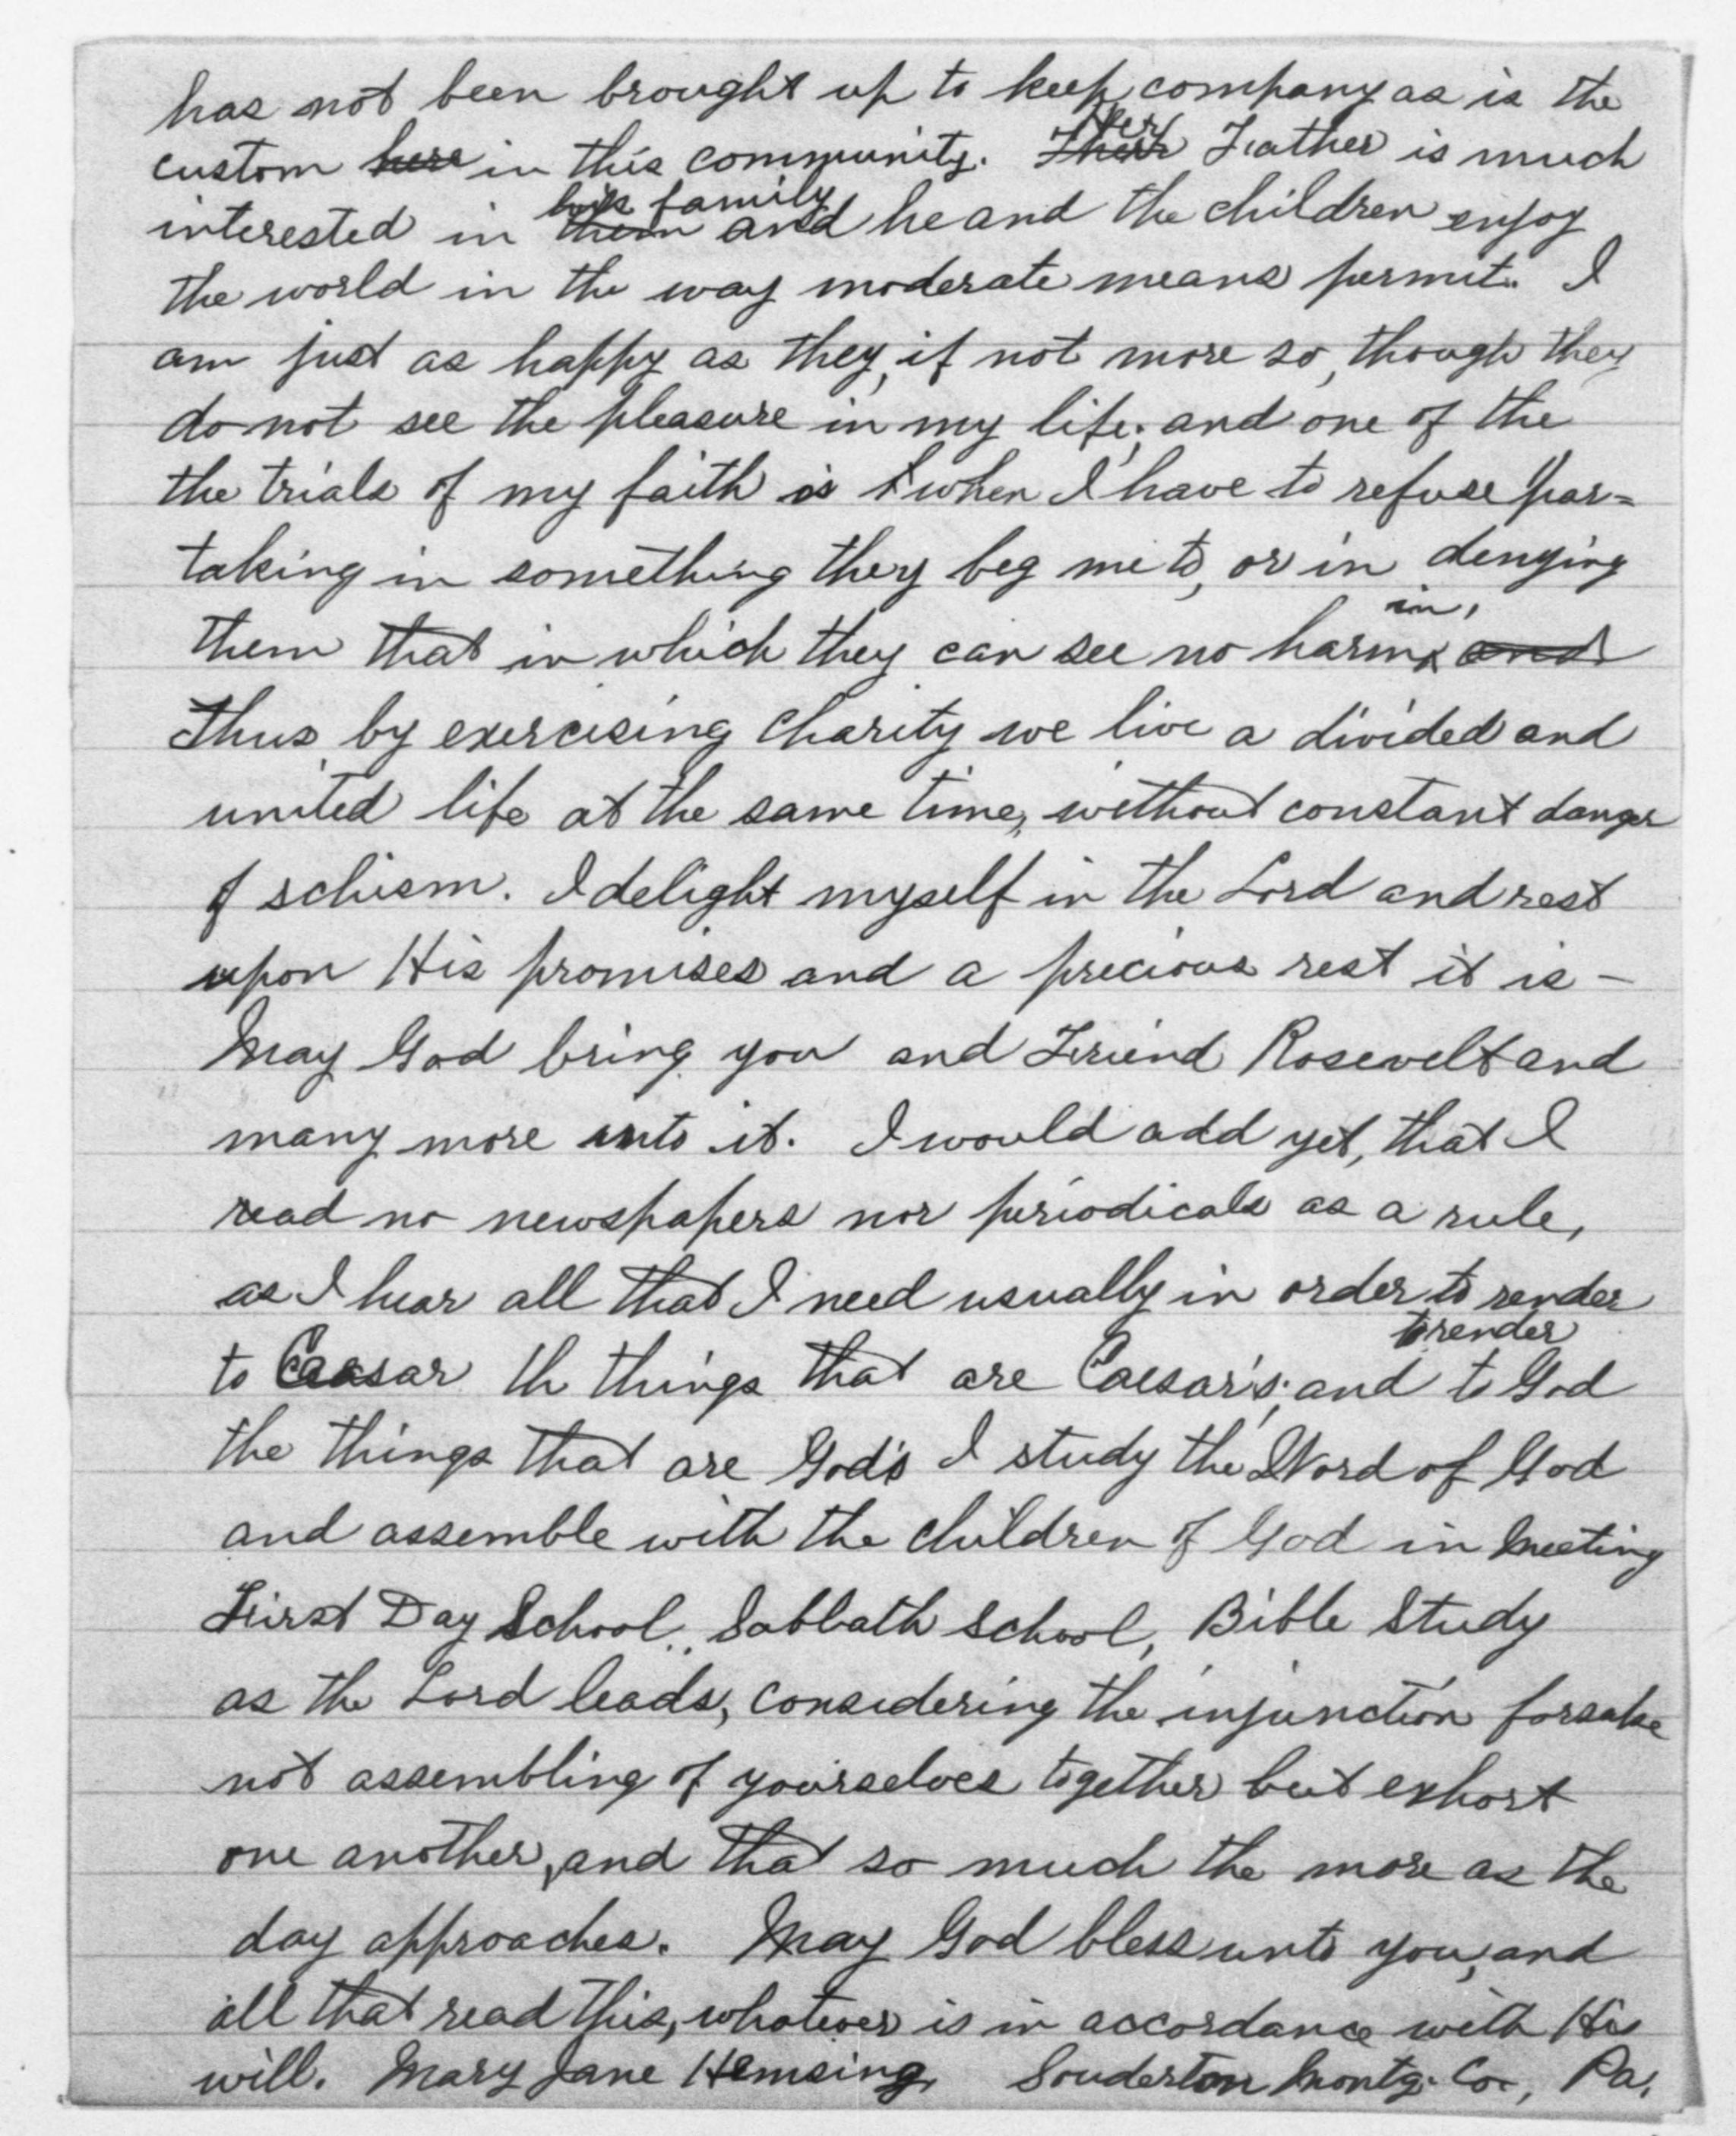 has not been brought up to keep company as is the
custom here in this community. Their Her Father is much
interested in them his family and he and the children enjoy
the world in the way moderate means permit. I
am just as happy as they, if not more so, though they
do not see the pleasure in my life; and one of the
the trials of my faith is when I have to refuse par=
taking in something they beg me to, or in denying
them that in which they can see no harm in, and
Thus by exercising charity we live a divided and
united life at the same time, without constant danger
of schism. I delight myself in the Lord and rest
upon His promises and a precious rest it is -
May God bring you and Friend Rosevelt and
many more into it. I would add yet, that I
read no newspapers nor periodicals as a rule,
as I hear all that I need usually in order to render
to Caesar th things that are Caesar's; and to render to God
the things that are God's I study the Word of God
and assemble with the children of God in Meeting
First Day School, Sabbath School, Bible Study
as the Lord leads, considering the injunction forsake
not assembling of yourselves together but exhort
one another, and that so much the more as the
day approaches. May God bless unto you, and
all that read this, whatever is in accordance with His
will. Mary Jane Hemsing Souderton Montg. Co., Pa.